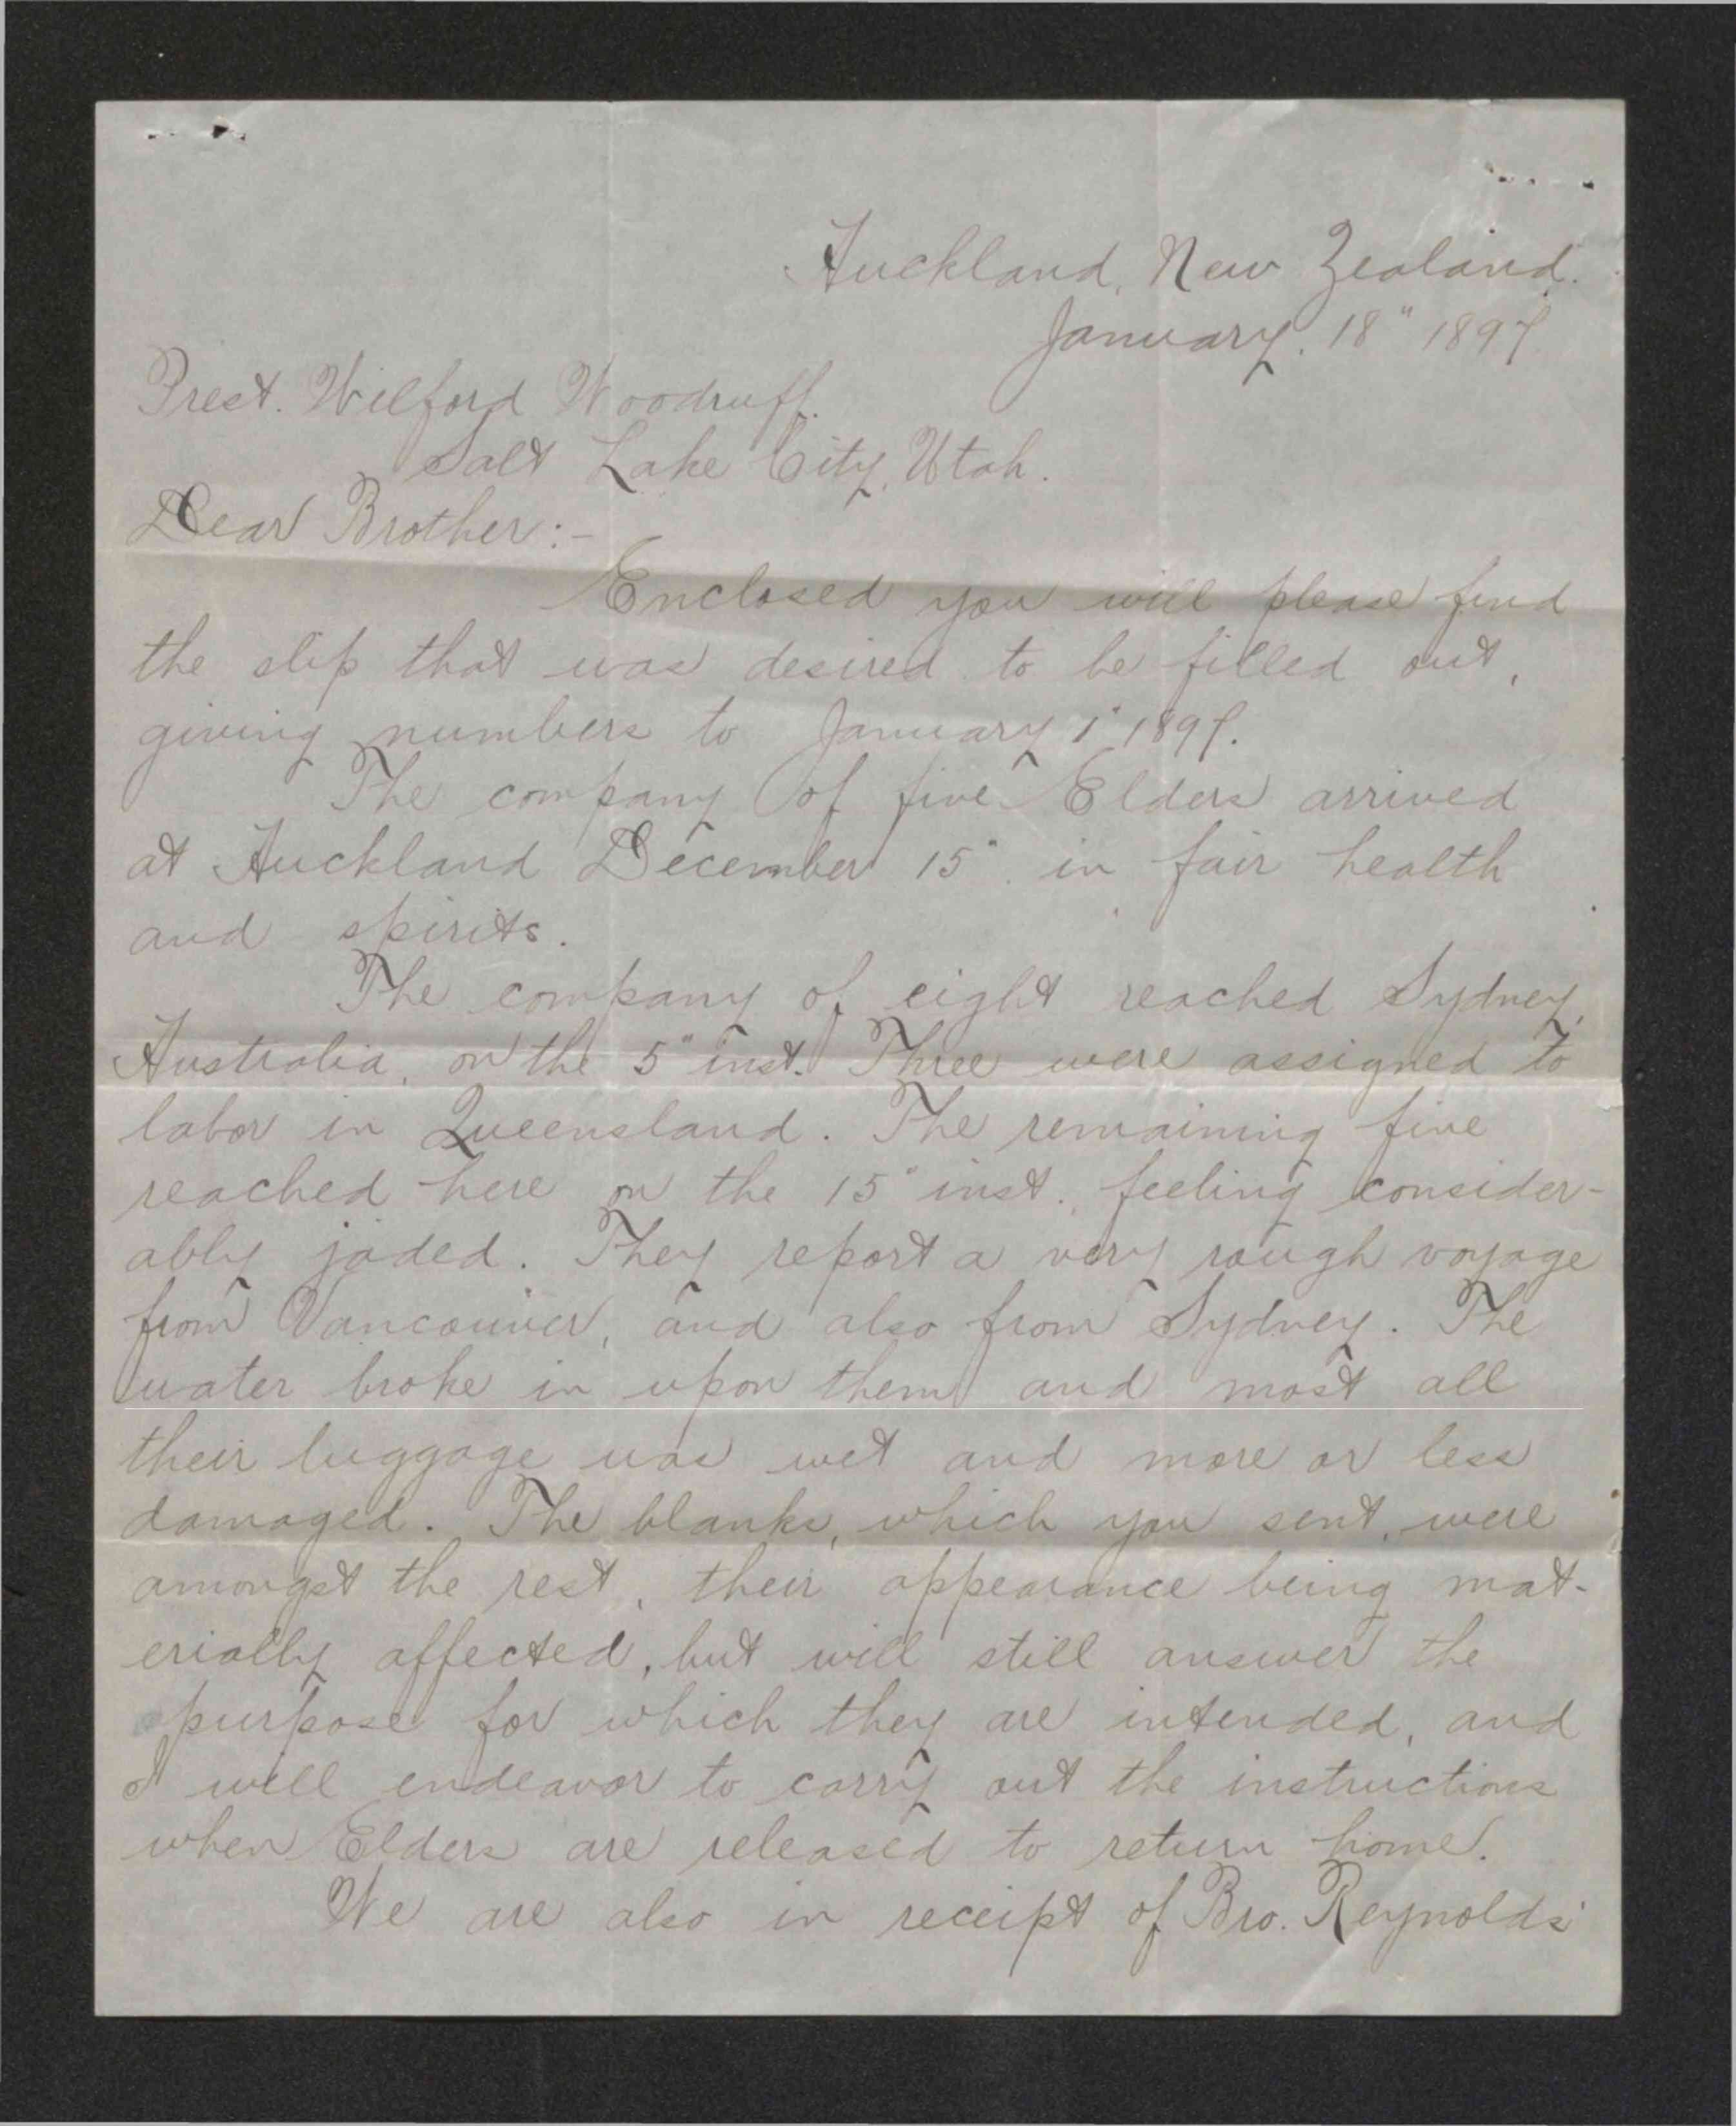 Auckland, New Zealand.
January. 18" 1897.
Prest. Wilford Woodruff.
Salt Lake City, Utah.
Dear Brother:-
Enclosed you will please find
the slip that was desired to be filled out,
giving numbers to January 1" 1897.
The company of five Elders arrived
at Auckland December 15". in fair health
and spirits.
The company of eight reached Sydney,
Australia, on the 5" inst. Three were assigned to
labor in Queensland. The remaining five
reached here on the 15" inst., feeling consider-
ably jaded. They report a very rough voyage
from Vancouver, and also from Sydney. The
water broke in upon them and most all
their luggage was wet and more or less
damaged. The blanks, which you sent, were
amongst the rest, their appearance being mat-
erially affected, but will still answer the
purpose for which they are intended, and
I will endeavor to carry out the instructions
when Elders are released to return home.
We are also in receipt of Bro. Reynolds'